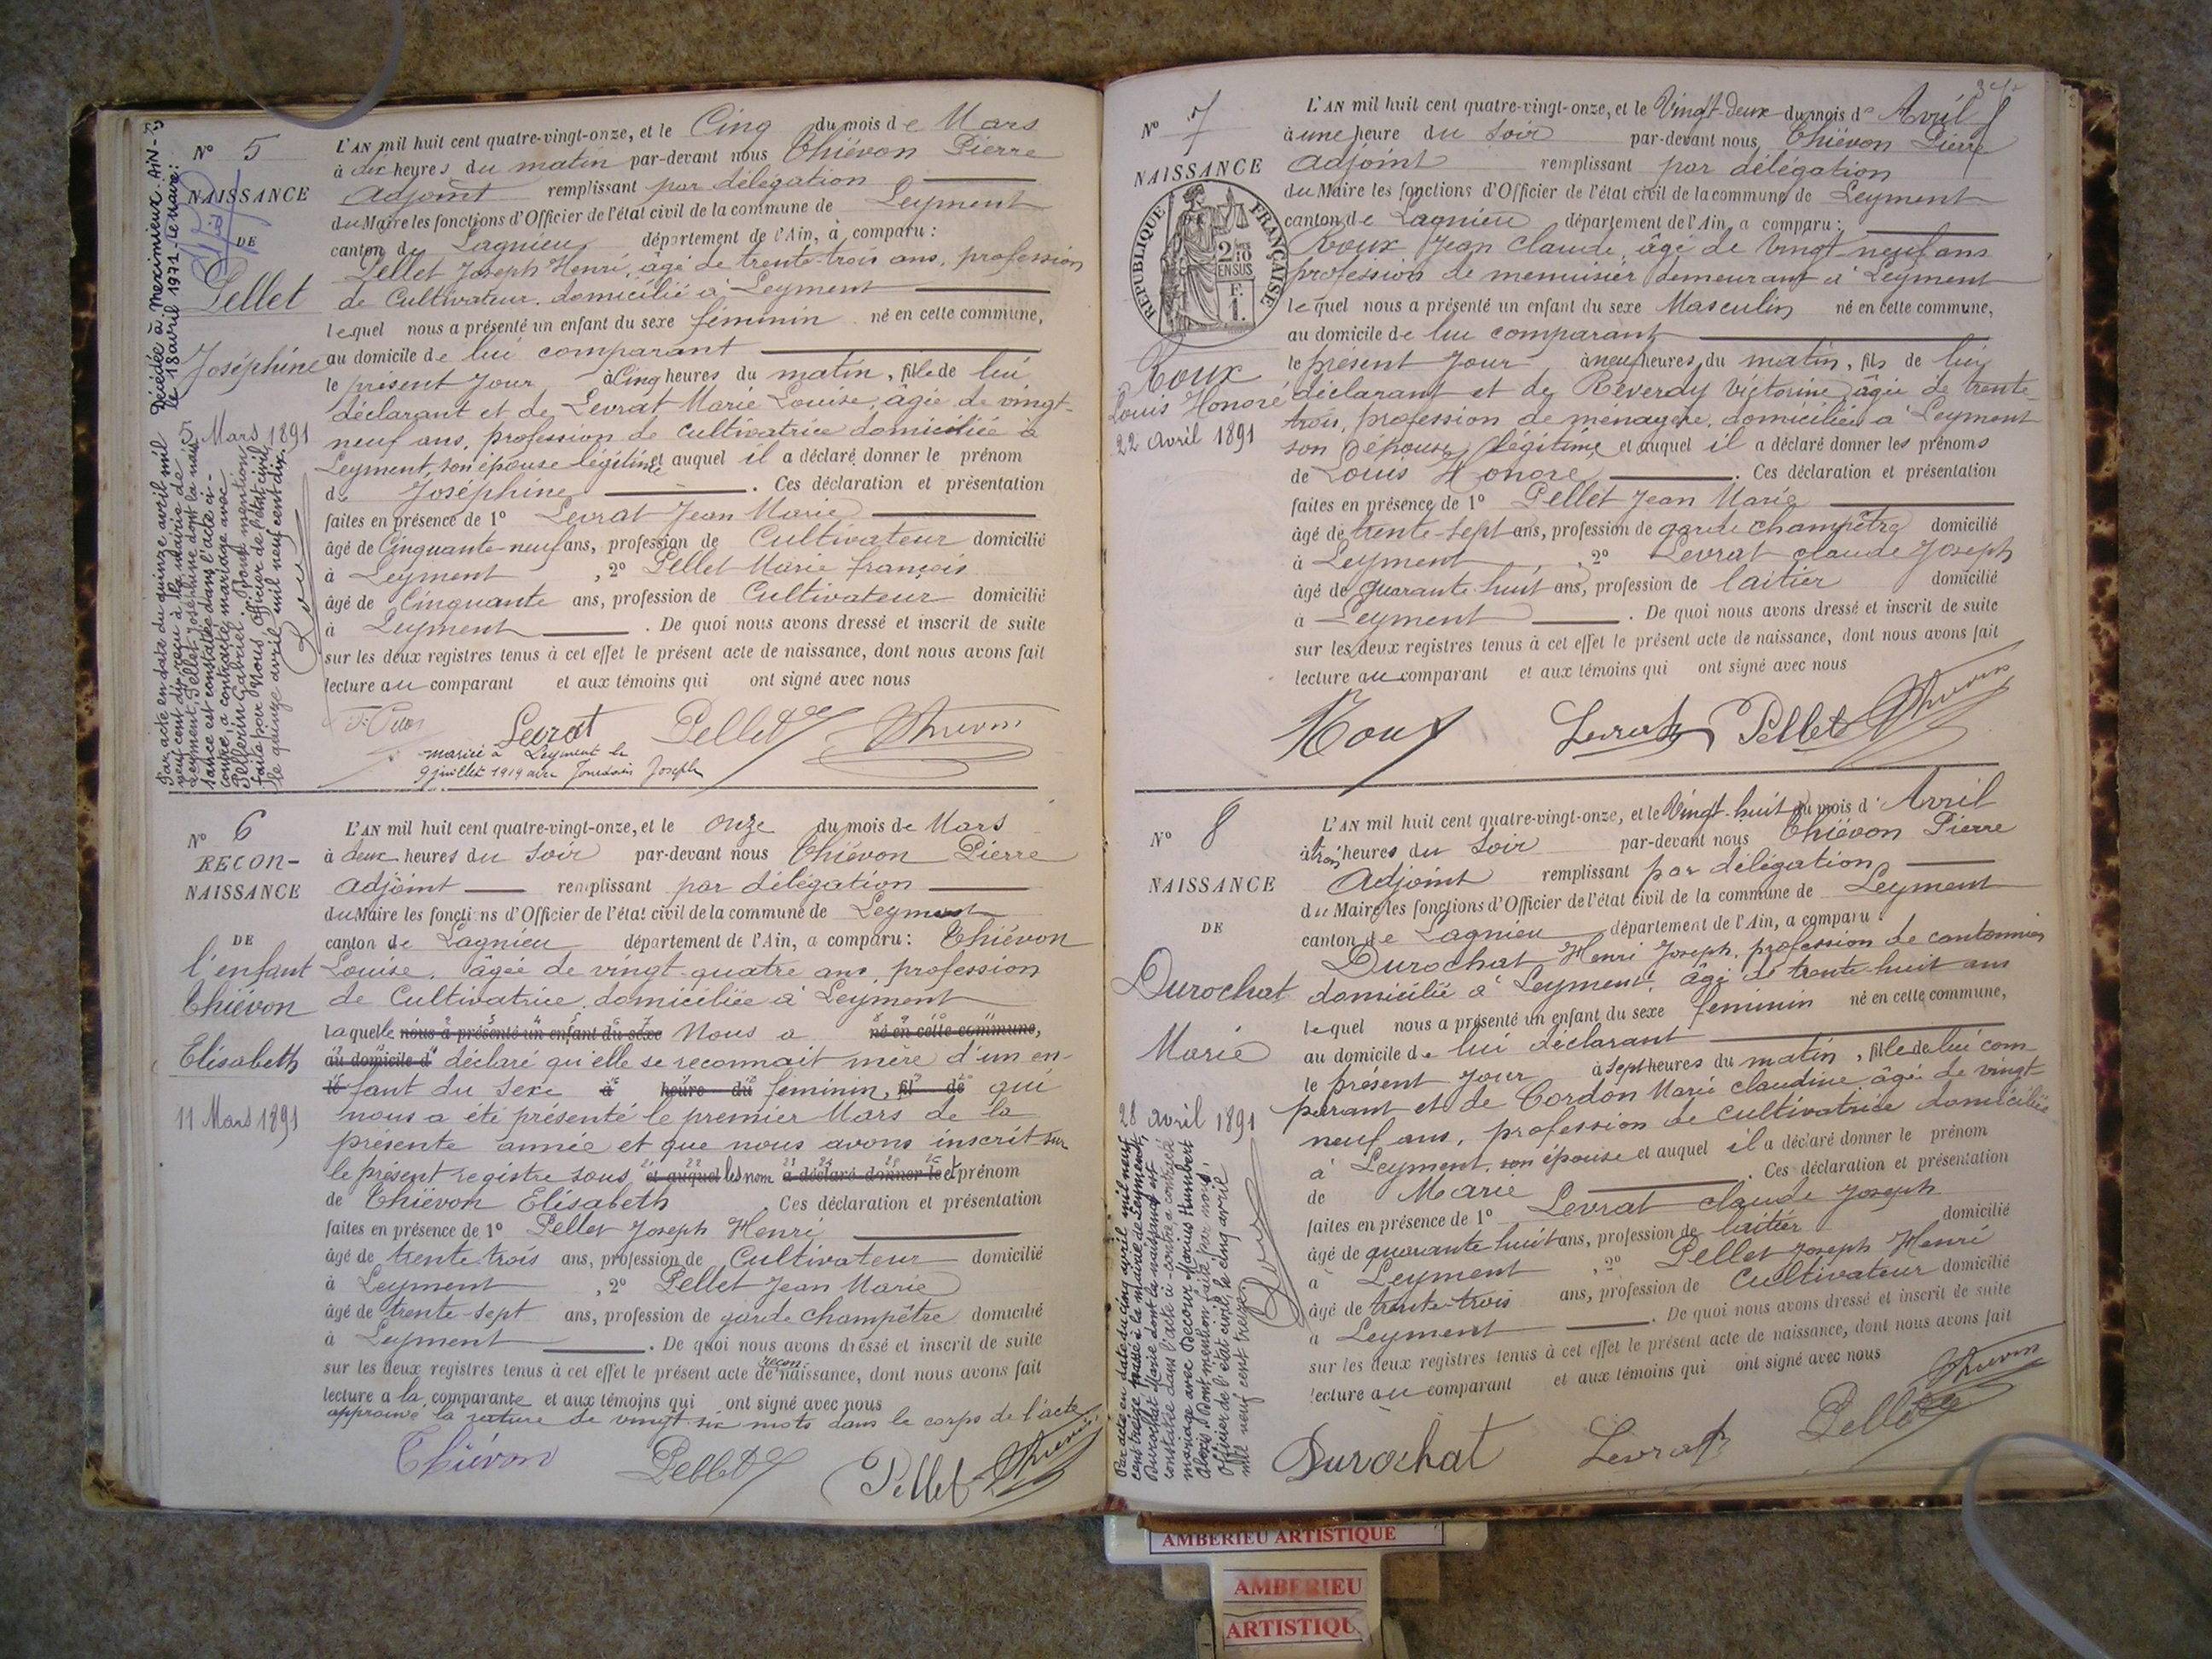 N° 5
NAISSANCE
DE
Pellet
Joséphine
5 Mars 1891
Décédée à Meximieux. AIN -
le 18 avril 1971. Le Maire:
Par acte en date du quinze avril mil
neuf cent dix reçu à la mairie de
Leyment, Pellet Joséphine dont la nais-
sance est constatée dans l'acte ci-
contre, a contracté mariage avec
Pellerin Gabriel. Dont mention
faite par Nous Officier de l'état civil
le quinze avril mil neuf cent dix.
L'AN mil huit cent quatre-vingt-onze, et le Cinq du mois de Mars
à dix heures du matin par-devant nous Thiévon Pierre
Adjoint remplissant par délégation
du Maire les fonctions d'Officier de l'état civil de la commune de Leyment
canton de Lagnieu département de l'Ain, à comparu :
Pellet Joseph Henri, âgé de trente-trois ans, profession
de Cultivateur, domicilié à Leyment
lequel nous a présenté un enfant du sexe féminin né en cette commune,
au domicile de lui comparant
le présent jour à Cinq heures du matin, fille de lui
déclarant et de Levrat Marie Louise, âgée de vingt-
neuf ans, profession de cultivatrice domiciliée à
Leyment, son épouse légitime et auquel il a déclaré donner le prénom
de Joséphine . Ces déclaration et présentation
faites en présence de 1° Levrat Jean Marie
âgé de Cinquante-neuf ans, profession de Cultivateur domicilié
à Leyment , 2° Pellet Marie françois
âgé de Cinquante ans, profession de Cultivateur domicilié
à Leyment . De quoi nous avons dressé et inscrit de suite
sur les deux registres tenus à cet effet le présent acte de naissance, dont nous avons fait
lecture au comparant et aux témoins qui ont signé avec nous
Levrat Pellet Thievon
mariée à Leyment le
9 juillet 1919 avec Joseph
N° 6
RECON-
NAISSANCE
DE
l'enfant
Thiévon
Elisabeth
11 Mars 1891
L'AN mil huit cent quatre-vingt-onze, et le onze du mois de Mars
à deux heures du soir par-devant nous Thiévon Pierre
Adjoint remplissant par délégation
du Maire les fonctions d'Officier de l'état civil de la commune de Leyment
canton de Lagnieu département de l'Ain, a comparu : Thiévon
Louise, âgée de vingt-quatre ans, profession
de Cultivatrice, domiciliée à Leyment
laquelle nous a présenté un enfant du sexe Nous a né en cette commune,
au domicile d déclaré qu'elle se reconnait mère d'un en-
le fant du sexe à heure du féminin, fil de qui
nous a été présenté le premier Mars de la
présente année et que nous avons inscrit sur
le présent registre sous et auquel les nom a déclaré donner le et prénom
de Thiévon Elisabeth Ces déclaration et présentation
faites en présence de 1° Pellet Joseph Henri
âgé de trente trois ans, profession de Cultivateur domicilié
à Leyment , 2° Pellet Jean Marie
âgé de trente-sept ans, profession de garde champêtre domicilié
à Leyment . De quoi nous avons dressé et inscrit de suite
sur les deux registres tenus à cet effet le présent acte de reconnaissance, dont nous avons fait
lecture a la comparante et aux témoins qui ont signé avec nous
approuvé la rature de vingt-six mots dans le corps de l'acte
Thiévon Pellet Pellet Thievon
N° 7
NAISSANCE
RÉPUBLIQUE FRANÇAISE
2/10 EN SUS
F. 1.
Roux
Louis Honoré
22 Avril 1891
L'AN mil huit cent quatre-vingt-onze, et le Vingt-deux du mois d' Avril
à une heure du soir par-devant nous, Thiévon Pierre
Adjoint remplissant par délégation
du Maire les fonctions d'Officier de l'état civil de la commune de Leyment
canton de Lagnieu département de l'Ain, a comparu :
Roux Jean Claude, âgé de vingt-neuf ans
profession de menuisier demeurant à Leyment
lequel nous a présenté un enfant du sexe Masculin né en cette commune,
au domicile de lui comparant
le présent jour à neuf heures du matin, fils de lui
déclarant et de Reverdy Victorine, âgée de trente-
trois, profession de ménagère, domiciliée à Leyment
son épouse légitime et auquel il a déclaré donner les prénoms
de Louis Honoré . Ces déclaration et présentation
faites en présence de 1° Pellet Jean Marie
âgé de trente-sept ans, profession de garde champêtre domicilié
à Leyment , 2° Levrat Claude Joseph
âgé de quarante-huit ans, profession de laitier domicilié
à Leyment . De quoi nous avons dressé et inscrit de suite
sur les deux registres tenus à cet effet le présent acte de naissance, dont nous avons fait
lecture au comparant et aux témoins qui ont signé avec nous
Roux Levrat Pellet Thievon
N° 8
NAISSANCE
DE
Durochat
Marie
28 avril 1891
Par acte en date du cinq avril mil neuf
cent treize, passé à la mairie de Leyment,
Durochat Marie dont la naissance est
constatée dans l'acte ci-contre, a contracté
mariage avec Decour Marius Humbert
Alexis. Dont mention faite par nous,
Officier de l'état civil, le cinq avril
mil neuf cent treize.
L'AN mil huit cent quatre-vingt-onze, et le Vingt-huit du mois d' Avril
à trois heures du soir par-devant nous Thiévon Pierre
Adjoint remplissant par délégation
du Maire les fonctions d'Officier de l'état civil de la commune de Leyment
canton de Lagnieu département de l'Ain, a comparu :
Durochat Henri Joseph, profession de cantonnier
domicilié à Leyment, âgé de trente-huit ans
lequel nous a présenté un enfant du sexe féminin né en cette commune,
au domicile de lui déclarant
le présent jour à sept heures du matin, fille de lui com-
parant et de Cordon Marie claudine âgée de vingt-
neuf ans, profession de cultivatrice domiciliée
à Leyment, son épouse et auquel il a déclaré donner le prénom
de Marie . Ces déclaration et présentation
faites en présence de 1° Levrat Claude Joseph
âgé de quarante huit ans, profession de laitier domicilié
à Leyment , 2° Pellet Joseph Henri
âgé de trente-trois ans, profession de Cultivateur domicilié
à Leyment . De quoi nous avons dressé et inscrit de suite
sur les deux registres tenus à cet effet le présent acte de naissance, dont nous avons fait
lecture au comparant et aux témoins qui ont signé avec nous
Durochat Levrat Pellet Thievon
AMBERIEU ARTISTIQUE
AMBERIEU
ARTISTIQU